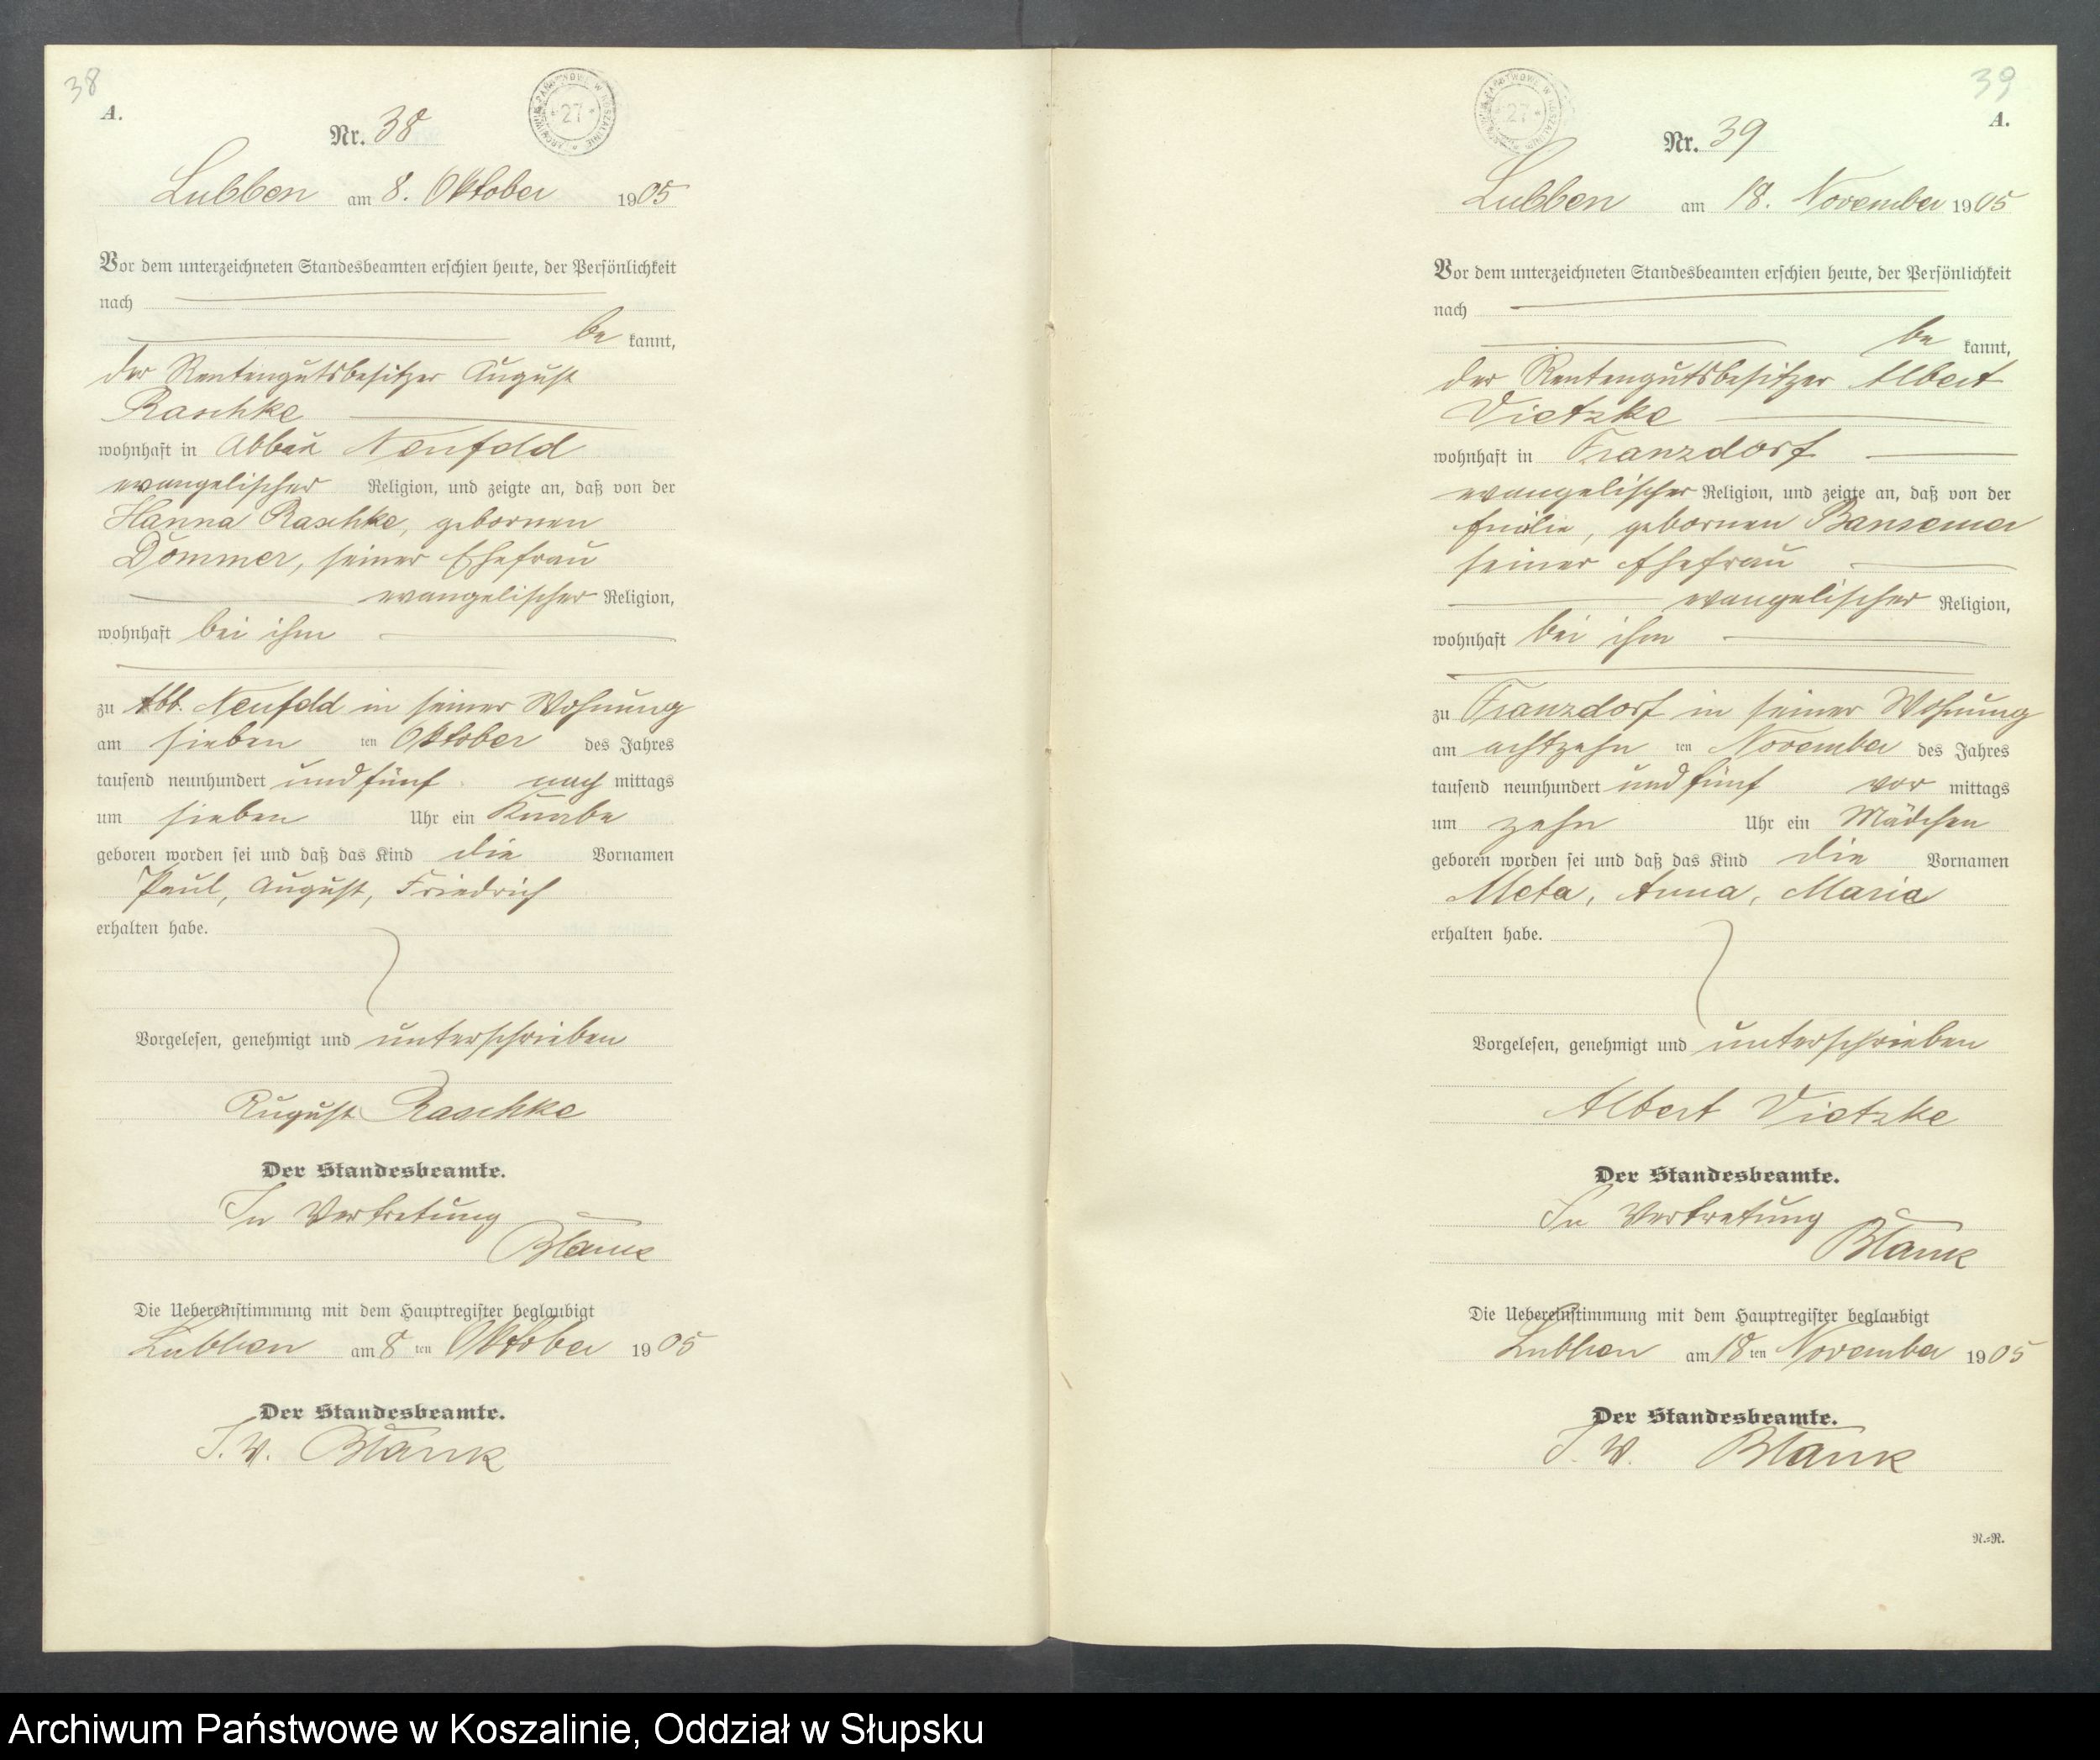 38
A.
Nr. 38
ARCHIWUM PAŃSTWOWE W KOSZALINIE
27
Lubben am 8. Oktober 1905
Vor dem unterzeichneten Standesbeamten erschien heute, der Persönlichkeit
nach
be kannt,
der Rentengutsbesitzer August
Raschke
wohnhaft in Abbau Neufeld
evangelischer Religion, und zeigte an, daß von der
Hanna Raschke, gebornen
Dommer, seiner Ehefrau
evangelischer Religion,
wohnhaft bei ihm
zu Abb. Neufeld in seiner Wohnung
am sieben ten Oktober des Jahres
tausend neunhundert und fünf nach mittags
um sieben Uhr ein Knabe
geboren worden sei und daß das Kind die Vornamen
Paul, August, Friedrich
erhalten habe.
Vorgelesen, genehmigt und unterschrieben
August Raschke
Der Standesbeamte.
In Vertretung
Blank
Die Uebereinstimmung mit dem Hauptregister beglaubigt
Lubben am 8 ten Oktober 1905
Der Standesbeamte.
I. V. Blank
39
A.
Nr. 39
ARCHIWUM PAŃSTWOWE W KOSZALINIE
27
Lubben am 18. November 1905
Vor dem unterzeichneten Standesbeamten erschien heute, der Persönlichkeit
nach
be kannt,
der Rentengutsbesitzer Albert
Vietzke
wohnhaft in Franzdorf
evangelischer Religion, und zeigte an, daß von der
Emilie, gebornen Bansemer
seiner Ehefrau
evangelischer Religion,
wohnhaft bei ihm
zu Franzdorf in seiner Wohnung
am achtzehn ten November des Jahres
tausend neunhundert und fünf vor mittags
um zehn Uhr ein Mädchen
geboren worden sei und daß das Kind die Vornamen
Meta, Anna, Maria
erhalten habe.
Vorgelesen, genehmigt und unterschrieben
Albert Vietzke
Der Standesbeamte.
In Vertretung
Blank
Die Uebereinstimmung mit dem Hauptregister beglaubigt
Lubben am 18 ten November 1905
Der Standesbeamte.
I. V. Blank
R.=R.
Archiwum Państwowe w Koszalinie, Oddział w Słupsku